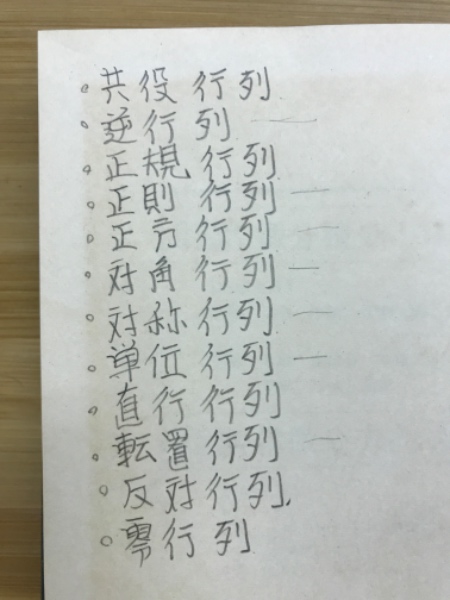 ○共役行列
○逆行列 —
○正規行列
○正則行列 —
○正方行列 —
○対角行列 —
○対称行列 —
○単位行列 —
○直行行列
○転置行列 —
○反対行列.
○零行列